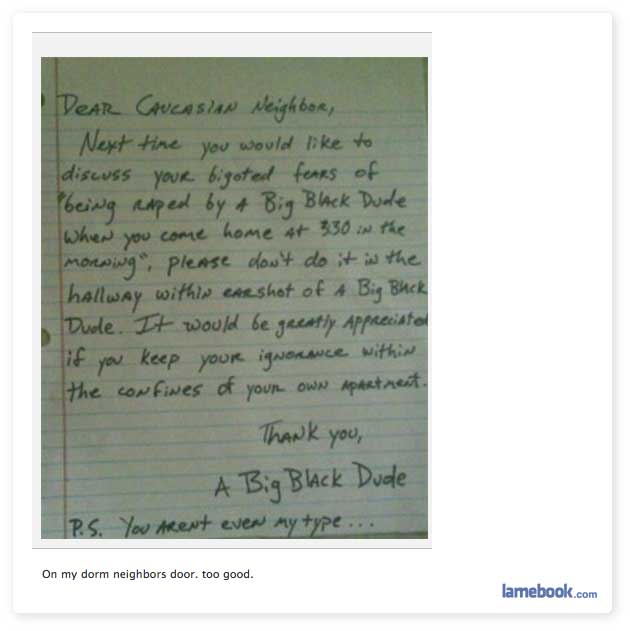 Dear Caucasian Neighbor,
Next time you would like to
discuss your bigoted fears of
"being raped by A Big Black Dude
when you come home at 330 in the
morning", please don't do it in the
hallway within earshot of A Big Black
Dude. It would be greatly appreciated
if you keep your ignorance within
the confines of your own apartment.
Thank you,
A Big Black Dude
P.S. You arent even my type...
On my dorm neighbors door. too good.
lamebook.com